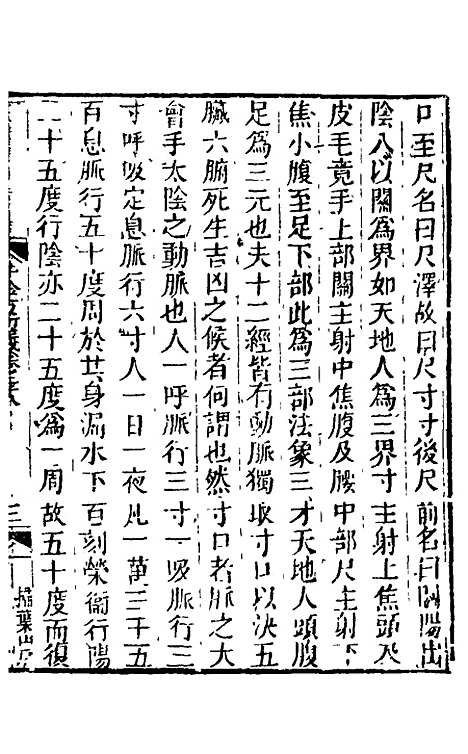 口至尺名曰尺澤故曰尺寸寸後尺前名曰關陽出
陰入以關為界如天地人為三界寸主射上焦頭及
皮毛竟手上部關主射中焦腹及腰中部尺主射下
焦小腹至足下部此為三部法象三才天地人頭腹
足為三元也夫十二經皆有動脈獨取寸口以決五
臟六腑死生吉凶之候者何謂也然寸口者脈之大
會手太陰之動脈也人一呼脈行三寸一吸脈行三
寸呼吸定息脈行六寸人一日一夜凡一萬三千五
百息脈行五十度周於其身漏水下百刻榮衞行陽
二十五度行陰亦二十五度為一周故五十度而復
三
掃葉山房